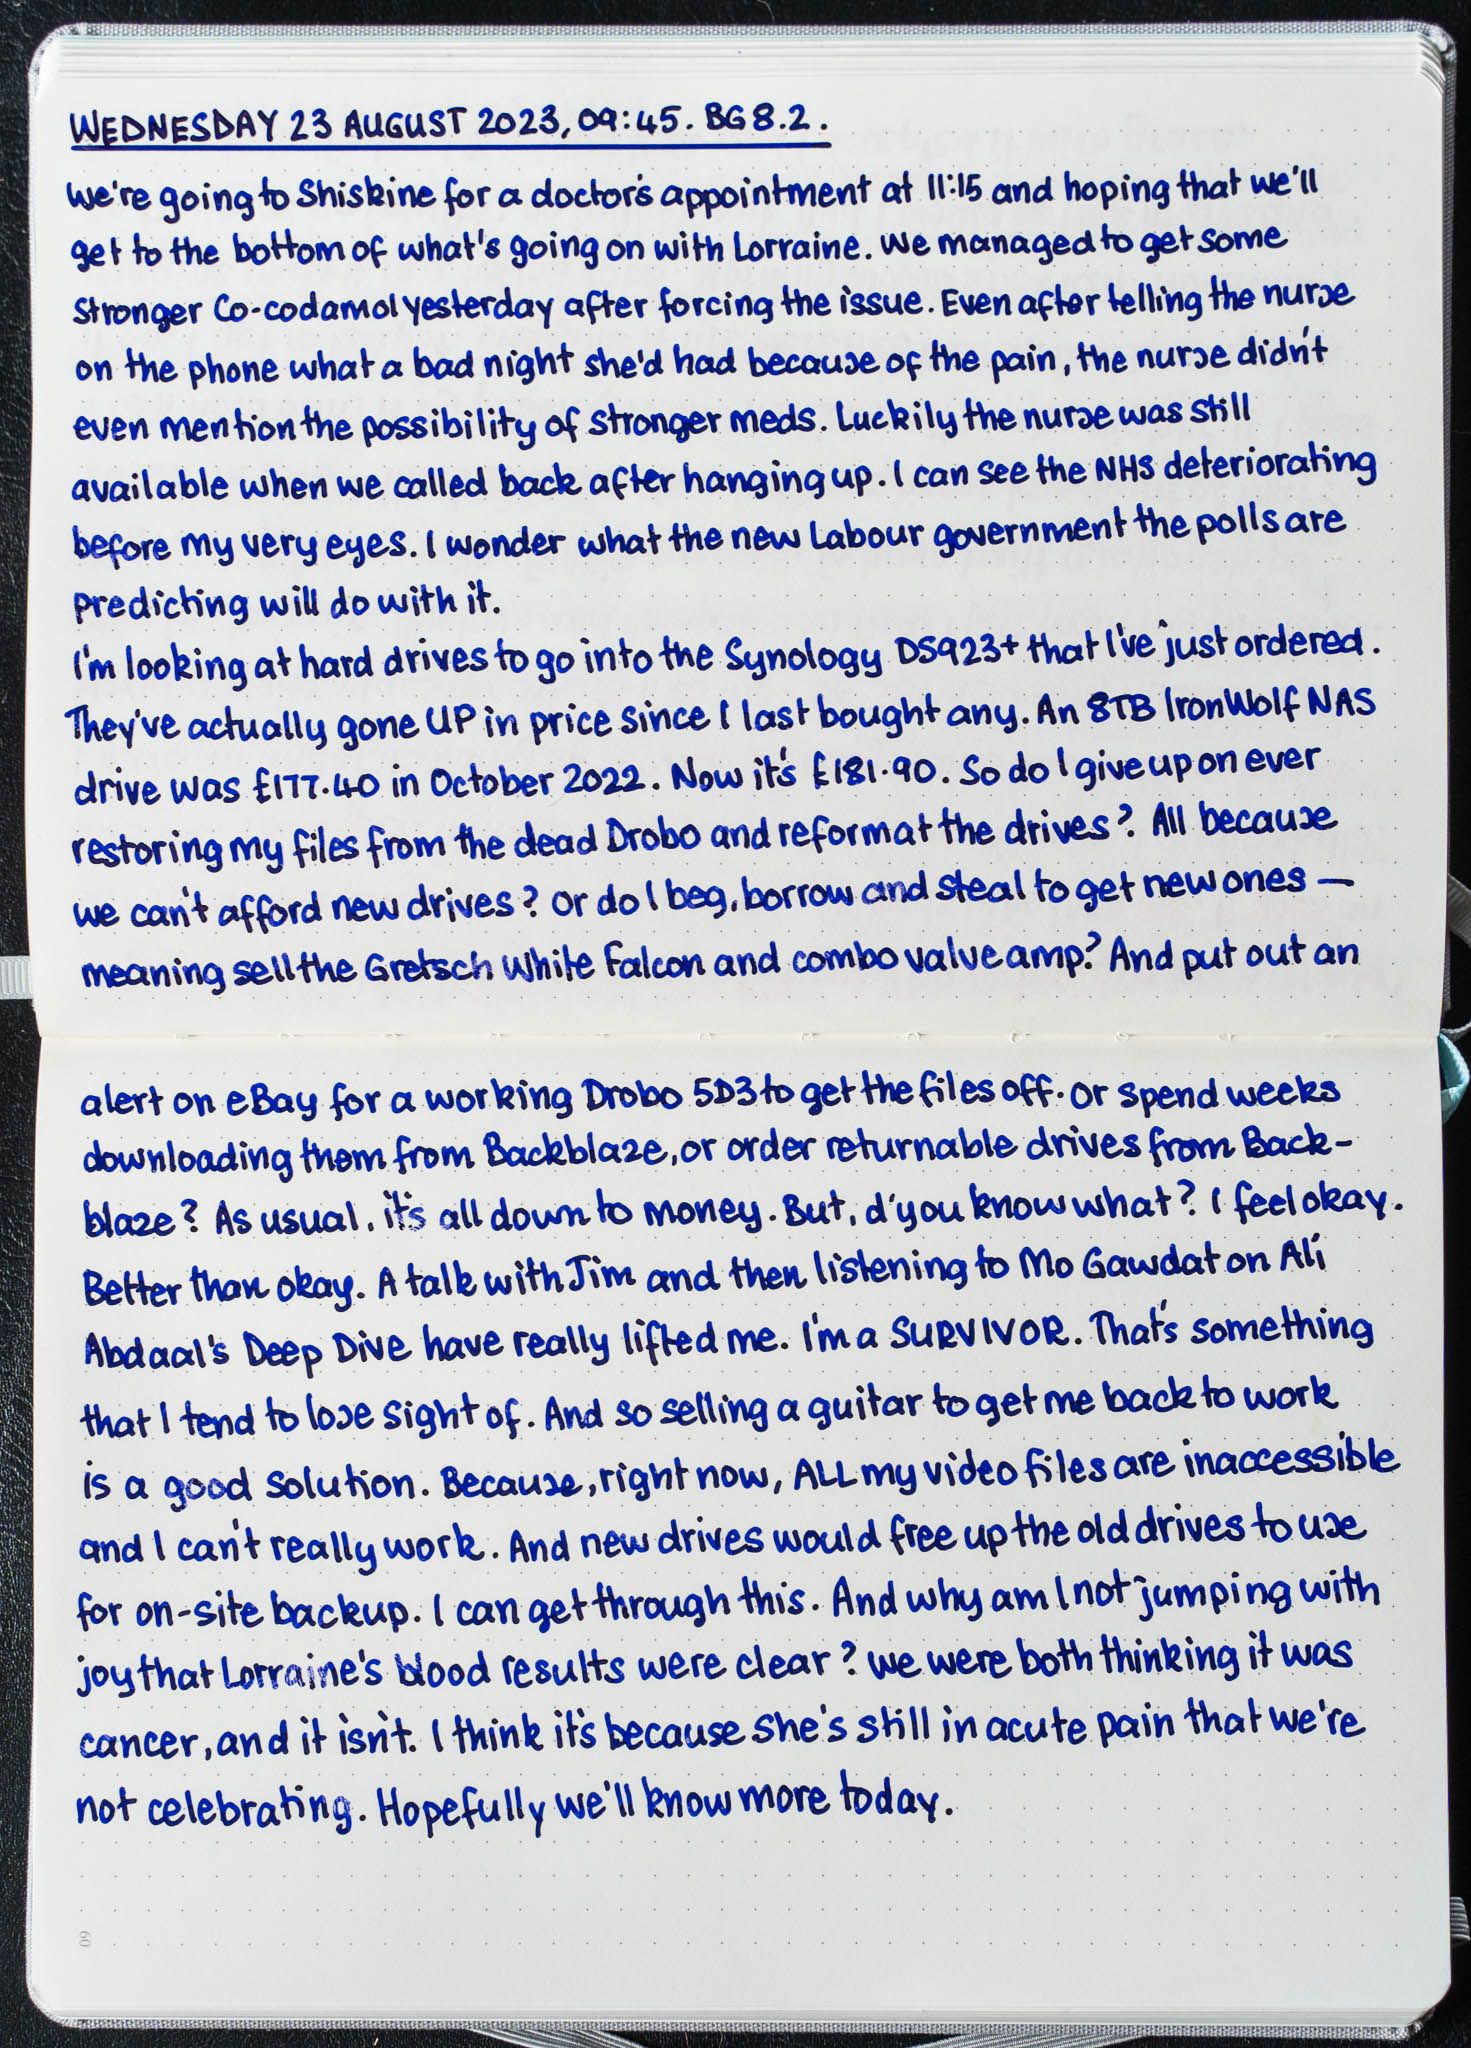 WEDNESDAY 23 AUGUST 2023, 09:45. BG 8.2.
We're going to Shiskine for a doctor's appointment at 11:15 and hoping that we'll
get to the bottom of what's going on with Lorraine. We managed to get some
stronger Co-codamol yesterday after forcing the issue. Even after telling the nurse
on the phone what a bad night she'd had because of the pain, the nurse didn't
even mention the possibility of stronger meds. Luckily the nurse was still
available when we called back after hanging up. I can see the NHS deteriorating
before my very eyes. I wonder what the new Labour government the polls are
predicting will do with it.
I'm looking at hard drives to go into the Synology DS923+ that I've just ordered.
They've actually gone UP in price since I last bought any. An 8TB IronWolf NAS
drive was £177.40 in October 2022. Now it's £181.90. So do I give up on ever
restoring my files from the dead Drobo and reformat the drives? All because
we can't afford new drives? Or do I beg, borrow and steal to get new ones —
meaning sell the Gretsch White Falcon and combo valve amp? And put out an
alert on eBay for a working Drobo 5D3 to get the files off. Or spend weeks
downloading them from Backblaze, or order returnable drives from Back-
blaze? As usual, it's all down to money. But, d'you know what? I feel okay.
Better than okay. A talk with Jim and then listening to Mo Gawdat on Ali
Abdaal's Deep Dive have really lifted me. I'm a SURVIVOR. That's something
that I tend to lose sight of. And so selling a guitar to get me back to work
is a good solution. Because, right now, ALL my video files are inaccessible
and I can't really work. And new drives would free up the old drives to use
for on-site backup. I can get through this. And why am I not jumping with
joy that Lorraine's blood results were clear? We were both thinking it was
cancer, and it isn't. I think it's because she's still in acute pain that we're
not celebrating. Hopefully we'll know more today.
60